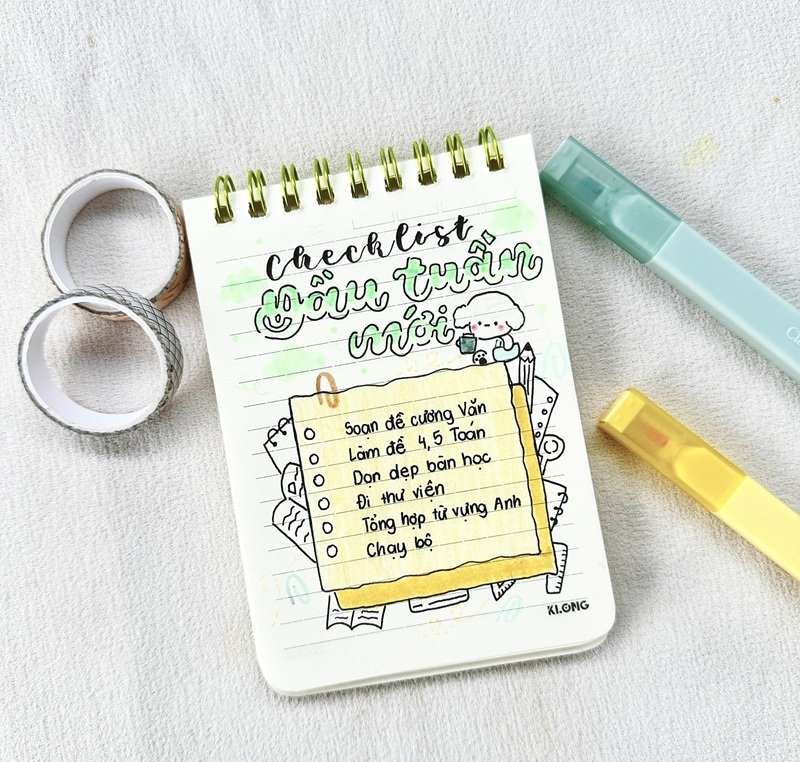 Checklist
Đầu tuần
mới
Soạn đề cương Văn
Làm đề 4,5 Toán
Dọn dẹp bàn học
Đi thư viện
Tổng hợp từ vựng Anh
Chạy bộ
KLONG